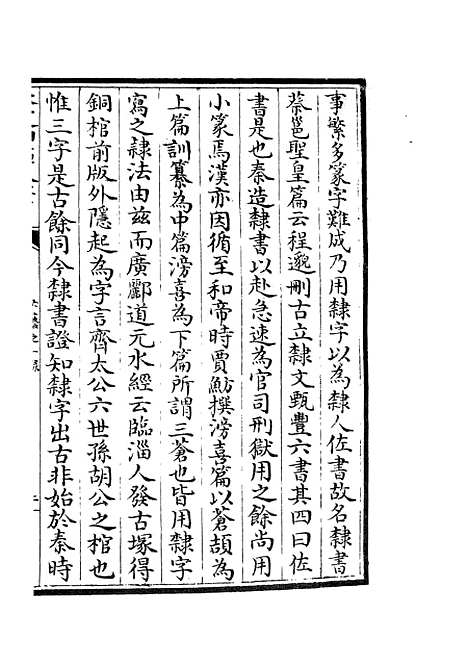 事繁多篆字難成乃用隸字以為隸人佐書故名隸書
蔡邕聖皇篇云程邈刪古立隸文甄豐六書其四曰佐
書是也秦造隸書以赴急速為官司刑獄用之餘尚用
小篆焉漢亦因循至和帝時賈魴撰滂喜篇以蒼頡為
上篇訓纂為中篇滂喜為下篇所謂三蒼也皆用隸字
寫之隸法由茲而廣酈道元水經云臨淄人發古塚得
銅棺前版外隱起為字言齊太公六世孫胡公之棺也
惟三字是古餘同今隸書證知隸字出古非始於秦時